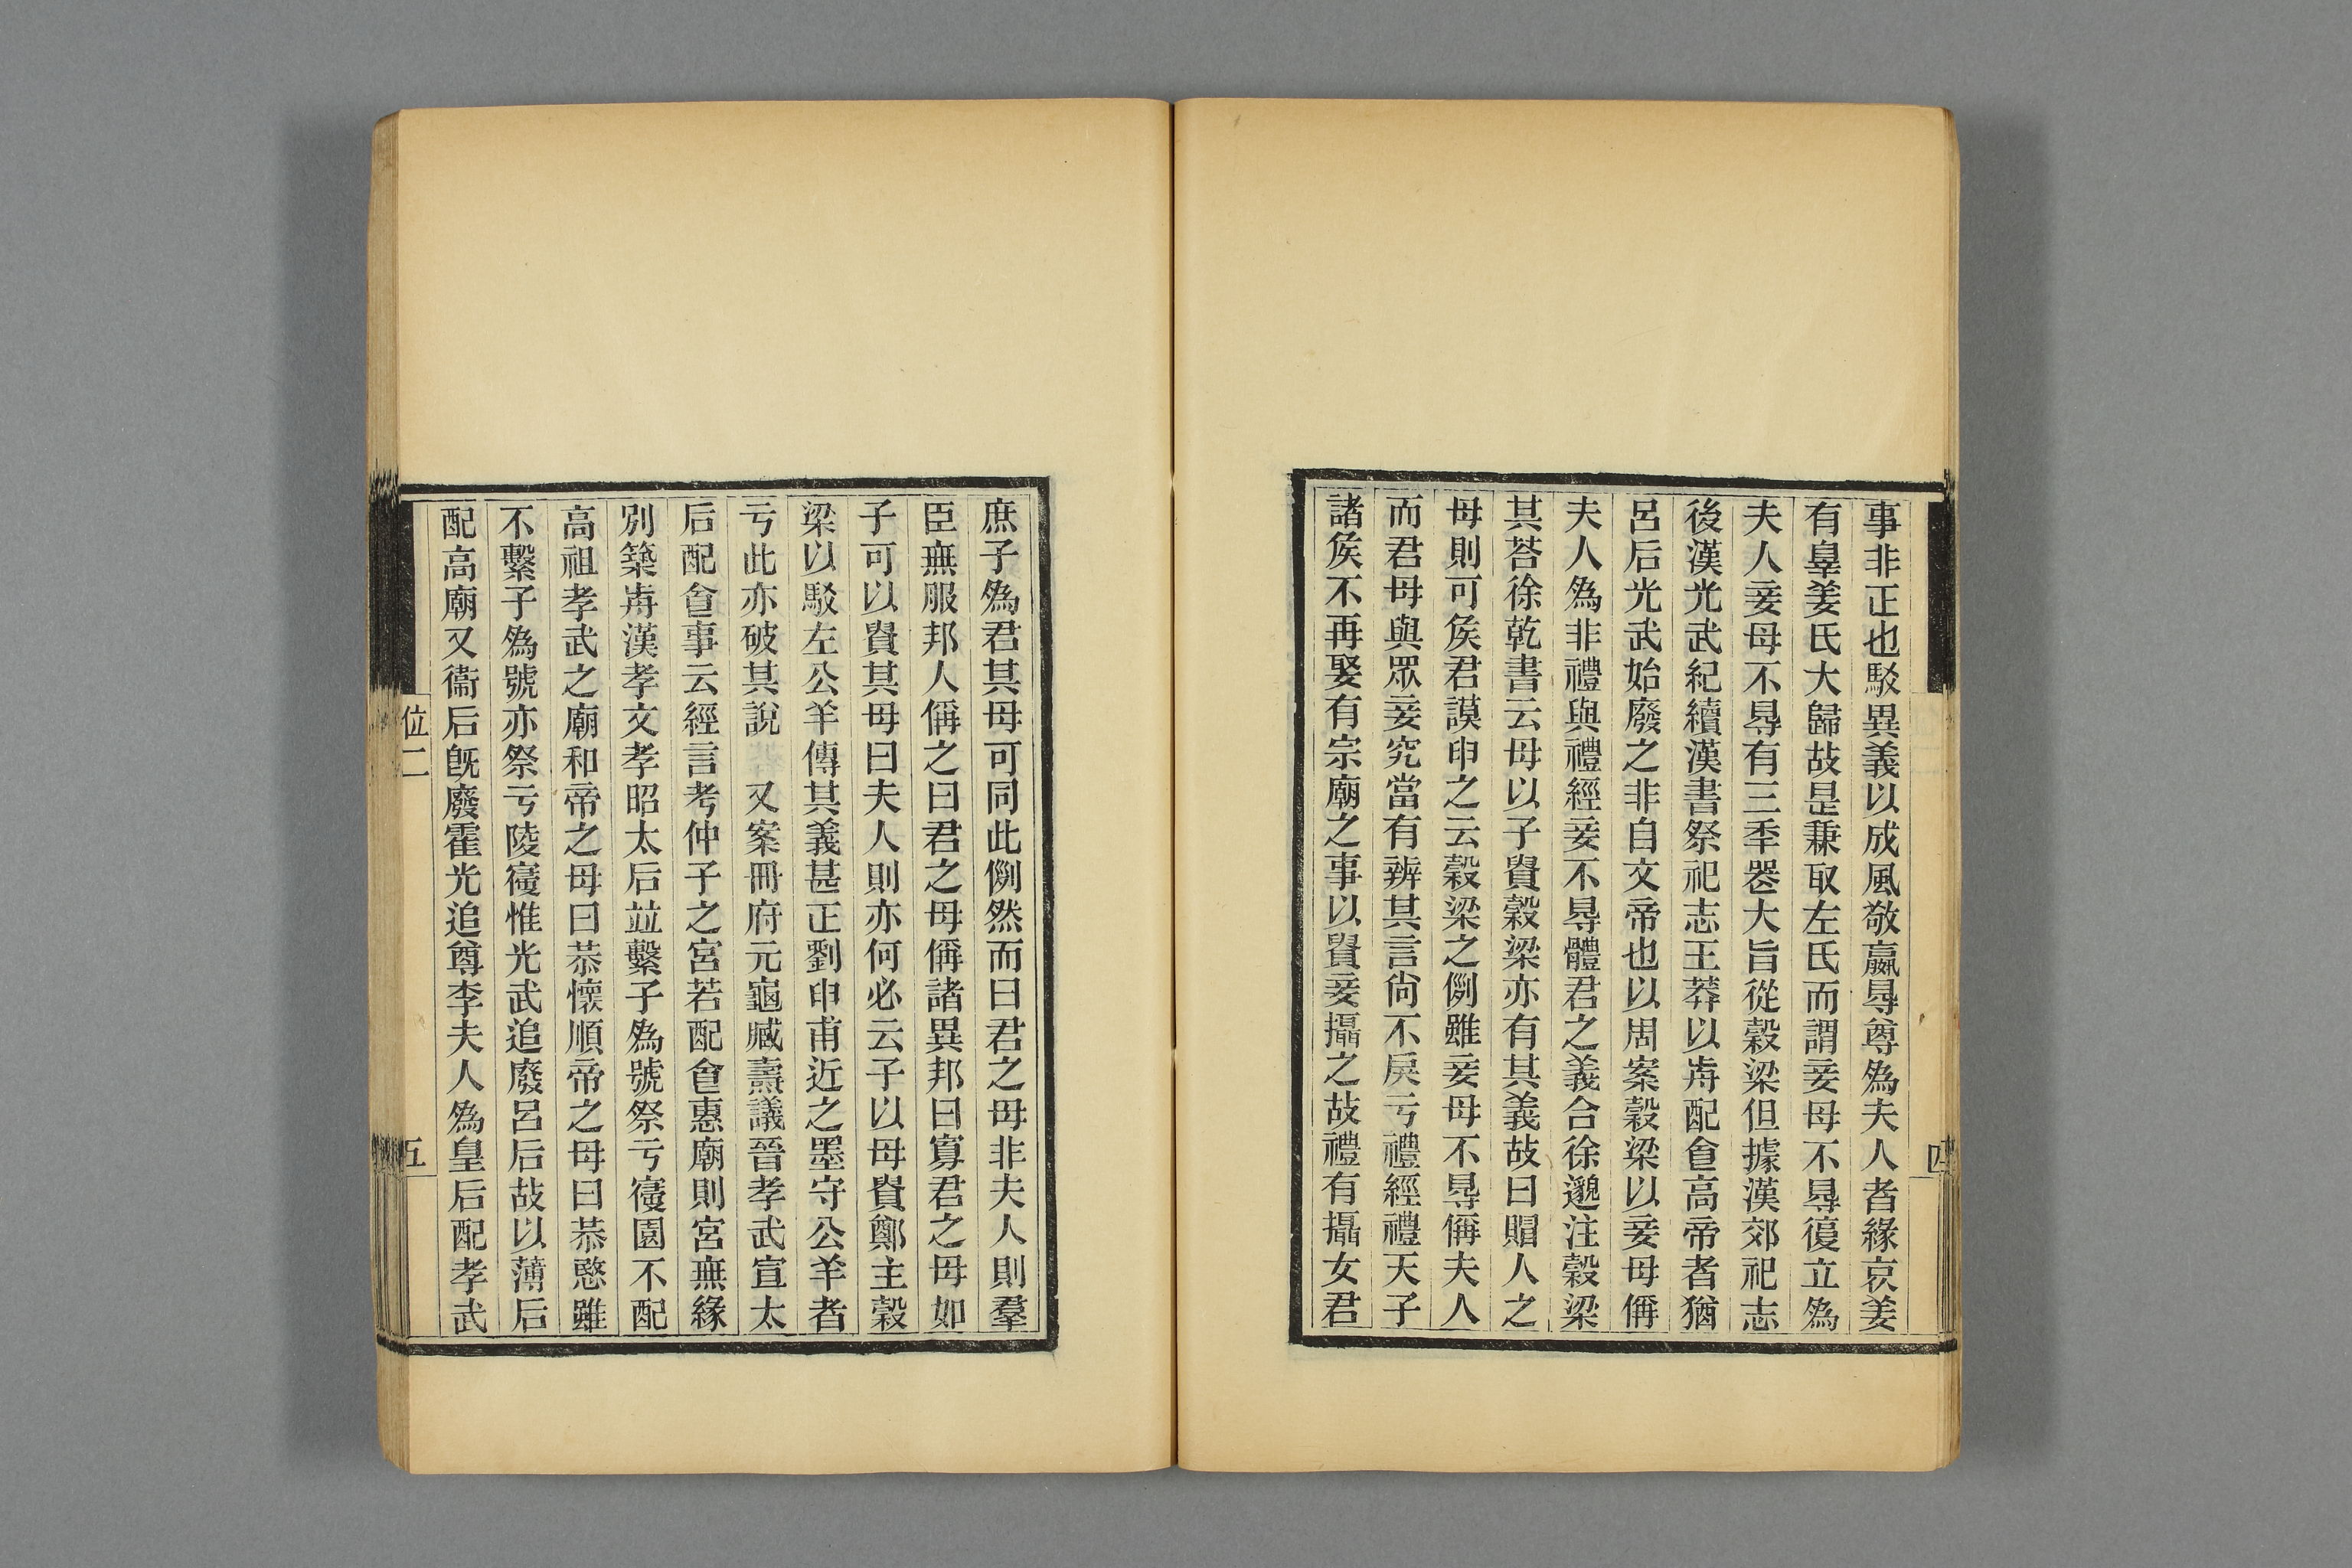 事非正也駁異義以成風敬嬴㝵尊爲夫人者緣哀姜
有辠姜氏大歸故是兼取左氏而謂妾母不㝵復立爲
夫人妾母不㝵有三秊䘮大旨從穀梁但據漢郊祀志
後漢光武紀續漢書祭祀志王莽以歬配食高帝者猶
呂后光武始廢之非自文帝也以周案穀梁以妾母偁
夫人爲非禮與禮經妾不㝵體君之義合徐邈注穀梁
其荅徐乾書云母以子貴穀梁亦有其義故曰賵人之
母則可矦君謨申之云穀梁之例雖妾母不㝵偁夫人
而君母與眾妾究當有辨其言尙不戾亏禮經禮天子
諸矦不再娶有宗廟之事以貴妾攝之故禮有攝女君
庶子爲君其母可同此例然而曰君之母非夫人則羣
臣無服邦人偁之曰君之母偁諸異邦曰寡君之母如
子可以貴其母曰夫人則亦何必云子以母貴鄭主穀
梁以駁左公羊傳其義甚正劉申甫近之墨守公羊者
亏此亦破其說 又案冊府元龜臧燾議晉孝武宣太
后配食事云經言考仲子之宮若配食惠廟則宮無緣
別築歬漢孝文孝昭太后竝繫子爲號祭亏寑園不配
高祖孝武之廟和帝之母曰恭懷順帝之母曰恭愍雖
不繫子爲號亦祭亏陵寑惟光武追廢呂后故以薄后
配高廟又衞后旣廢霍光追尊李夫人爲皇后配孝武
位二
五
四